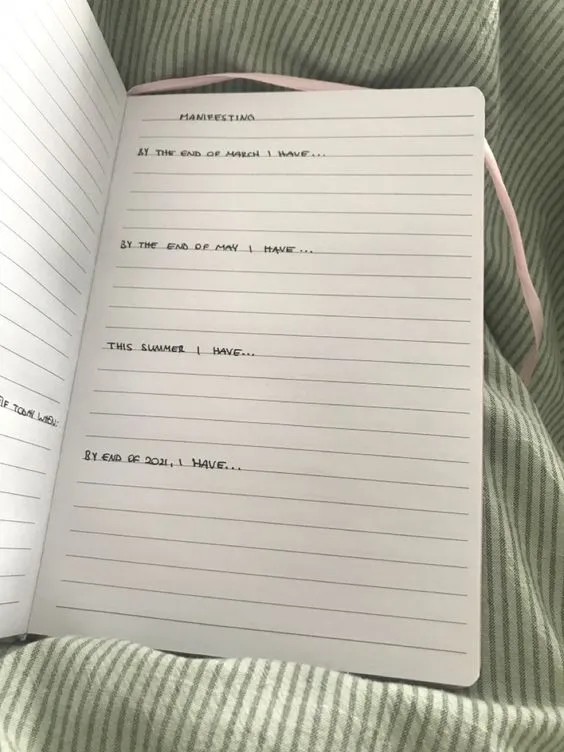 MANIFESTING
BY THE END OF MARCH I HAVE...
BY THE END OF MAY I HAVE...
THIS SUMMER I HAVE...
TODAY WHEN:
BY END OF 2021, I HAVE...